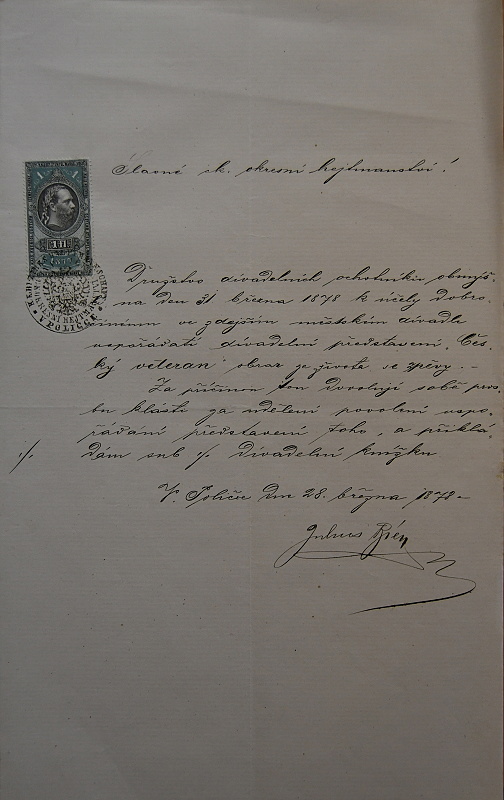 Slavné ck. okresní hejtmanství!
Družstvo divadelních ochotníku obmýš-
na den 31 března 1878 k účely dobro,
činnému ve zdejším městském divadle
uspořádati divadelní představení, Čes-
ký veteran" obraz ze života se zpěvy. -
Za příčinou tou dovoluji sobě pros,
bu klásti za udělení povolení uspo,
řádání představení toho, a přiklá
dám sub ·/· divadelní knížku
·/·
V Poličce dne 28. března 1878 -
Julius
1
V POLIČCE